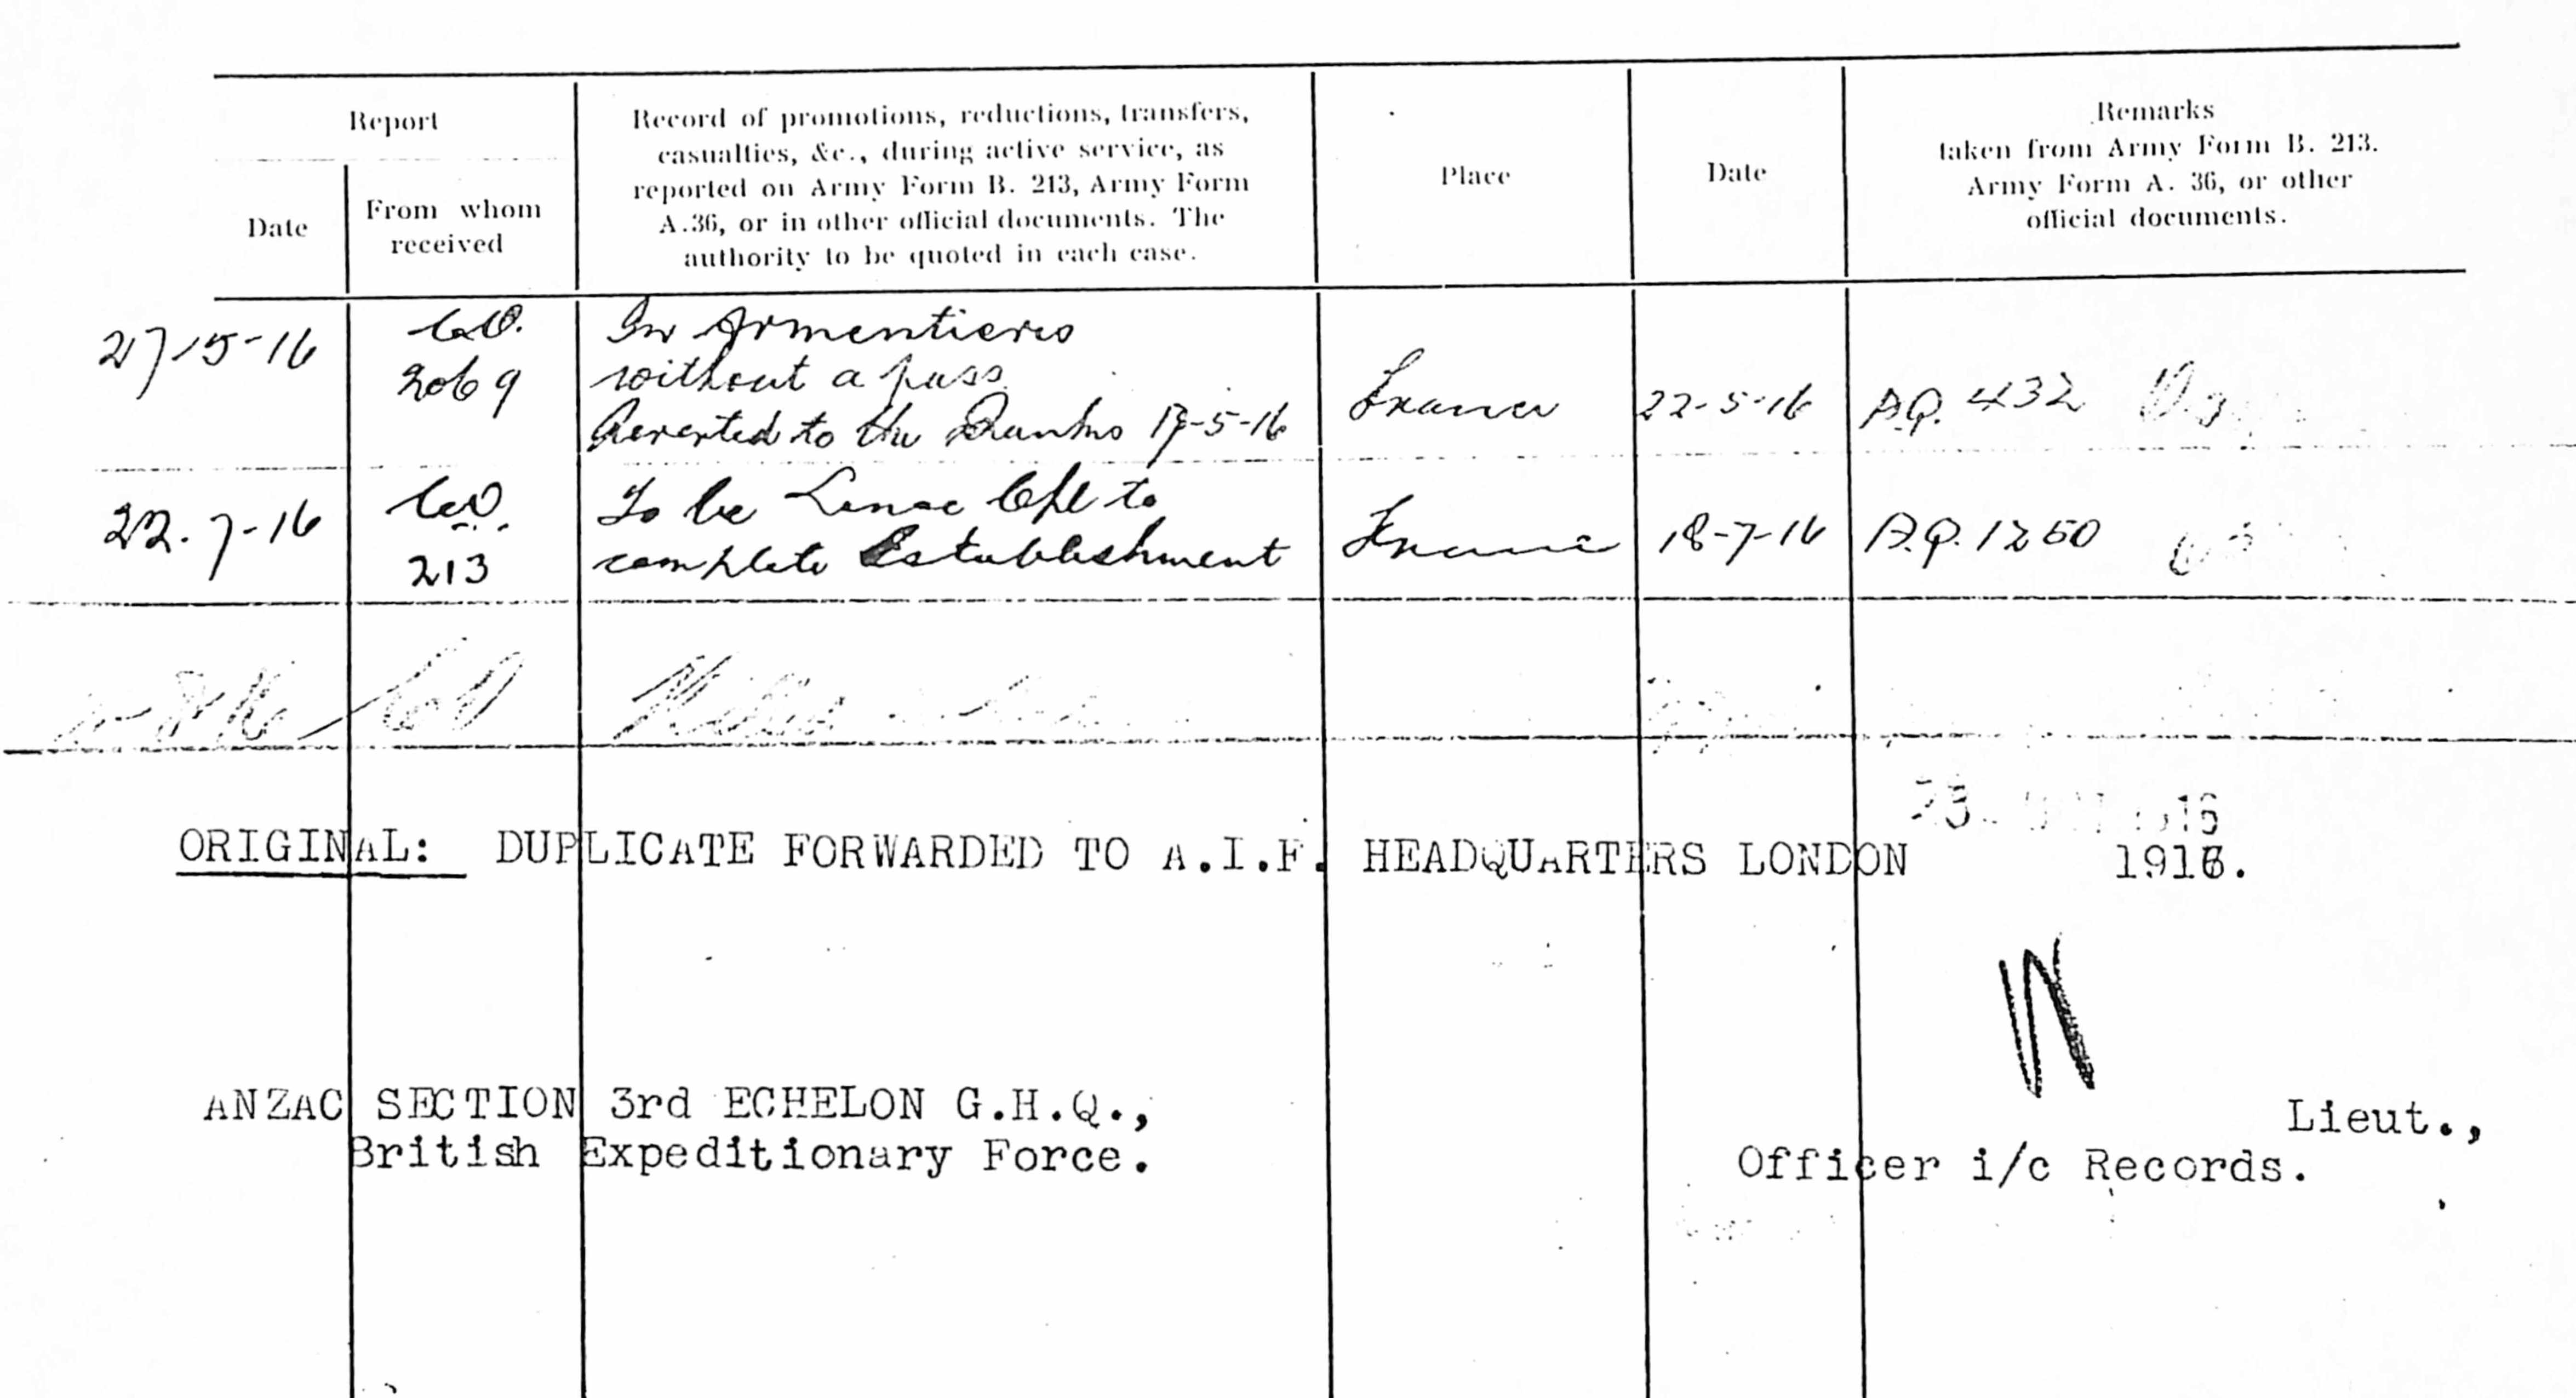 Report
Date
From whom
received
Record of promotions, reductions, transfers,
casualties, &c., during active service, as
reported on Army Form B. 213, Army Form
A.36, or in other official documents. The
authority to be quoted in each case.
Place
Date
Remarks
taken from Army Form B. 213.
Army Form A. 36, or other
official documents.
27-5-16
C.O.
2069
In Armentieres
without a pass
Reverted to the Ranks
France
22-5-16
432
22.7-16
C.O.
213
To be Lance Cpl to
complete Establishment
France
18-7-16
1250
ORIGINAL: DUPLICATE FORWARDED TO A.I.F. HEADQUARTERS LONDON
ANZAC SECTION 3rd ECHELON G.H.Q.,
British Expeditionary Force.
Lieut.,
Officer i/c Records.